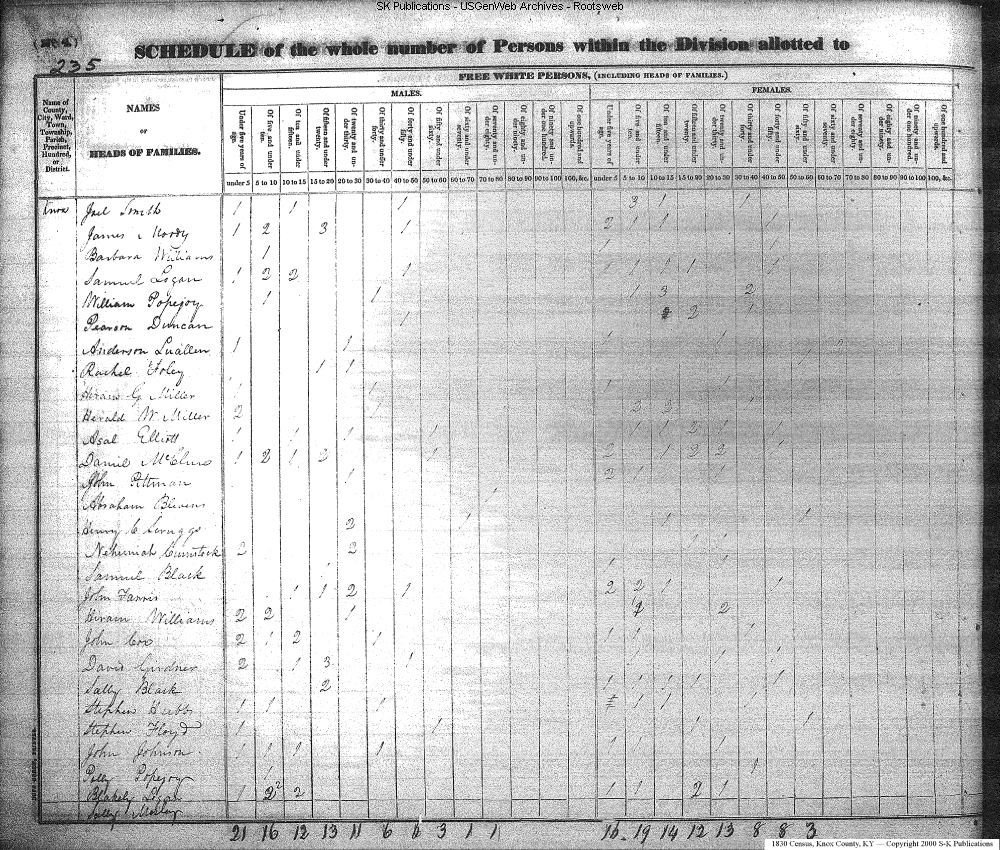 SK Publications - USGenWeb Archives - Rootsweb
235
SCHEDULE of the whole number of Persons within the Division allotted to
FREE WHITE PERSONS, (INCLUDING HEADS OF FAMILIES.)
MALES. FEMALES.
Name of County, City, Ward, Town, Township, Parish, Precinct, Hundred, or District.
NAMES
OR
HEADS OF FAMILIES.
Under five years of age. Of five and under ten. Of ten and under fifteen. Of fifteen and under twenty. Of twenty and under thirty. Of thirty and under forty. Of forty and under fifty. Of fifty and under sixty. Of sixty and under seventy. Of seventy and under eighty. Of eighty and under ninety. Of ninety and under one hundred. Of one hundred and upwards. Under five years of age. Of five and under ten. Of ten and under fifteen. Of fifteen and under twenty. Of twenty and under thirty. Of thirty and under forty. Of forty and under fifty. Of fifty and under sixty. Of sixty and under seventy. Of seventy and under eighty. Of eighty and under ninety. Of ninety and under one hundred. Of one hundred and upwards.
under 5 5 to 10 10 to 15 15 to 20 20 to 30 30 to 40 40 to 50 50 to 60 60 to 70 70 to 80 80 to 90 90 to 100 100, &c. under 5 5 to 10 10 to 15 15 to 20 20 to 30 30 to 40 40 to 50 50 to 60 60 to 70 70 to 80 80 to 90 90 to 100 100, &c.
Knox Joel Smith 1 1 1 3 1 1
James Moody 1 2 3 1 2 1 1 1
Barbara Williams 1 1 1
Samuel Logan 1 2 2 1 1 1 1 1 1
William Popejoy 1 1 1 3 2
Pearson Duncan 1 2 1
Anderson Luallen 1 1 1 1
Rachel Foley 1 1
Hiram G Miller 1 1 1 1
Herald W Miller 2 1 2 2 1
Asal Elliott 1 1 1 1 1 1 2 1 1
Daniel 1 2 1 2 1 2 1 2 2 1
John Pittman 1 2 1 1
Abraham Blevins 1
Henry C Scruggs 2 1 1 1
Nehemiah Cumstock 2 2 1 1
Samuel Black 1 1 1
John Farris 1 1 2 1 2 2 1 1
Hiram Williams 2 2 1 2
John Cox 2 1 2 1 1 1 1
David Gardner 2 1 3 1 1 1 1 1
Sally Black 2 1 1 1 1 1 1
Stephen Hubbs 1 1 1 1 1
Stephen Floyd 1 1 1
John Johnson 1 1 1 1 1 1 1
Polly Popejoy 1 1
Blakely Logan 1 2 2 1 1 2 1
Sally Mosley
21 16 12 13 11 6 6 3 1 1 16 19 14 12 13 8 8 3
1830 Census, Knox County, KY — Copyright 2000 S-K Publications